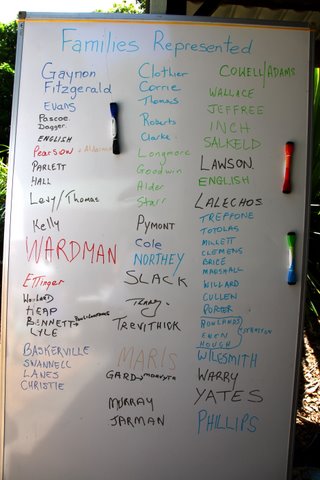 Families Represented
Gaynon
Fitzgerald
Evans
Pascoe
Dagger
ENGLISH
Pearson
PARLETT
HALL
Levy/Thomas
Kelly
WARDMAN
Effinger
HEAP
BENNETT
LYLE
BASKERVILLE
SWANNELL
LANES
CHRISTIE
Clothier
Corrie
Thomas
Roberts
Clarke
Longmore
Goodwin
Alder
Starr
PYMONT
Cole
NORTHEY
SLACK
TREVITHICK
MARIS
GARD
MURRAY
JARMAN
COWELL/ADAMS
WALLACE
JEFFREE
INCH
SALKELD
LAWSON
ENGLISH
LALECHOS
TREFFONE
TOTOLAS
MILLETT
CLEMENS
BRICE
MARSHALL
WILLARD
CULLEN
PORTER
ROWLANDS
EVEN
HOUGH
WILESMITH
WARRY
YATES
PHILLIPS